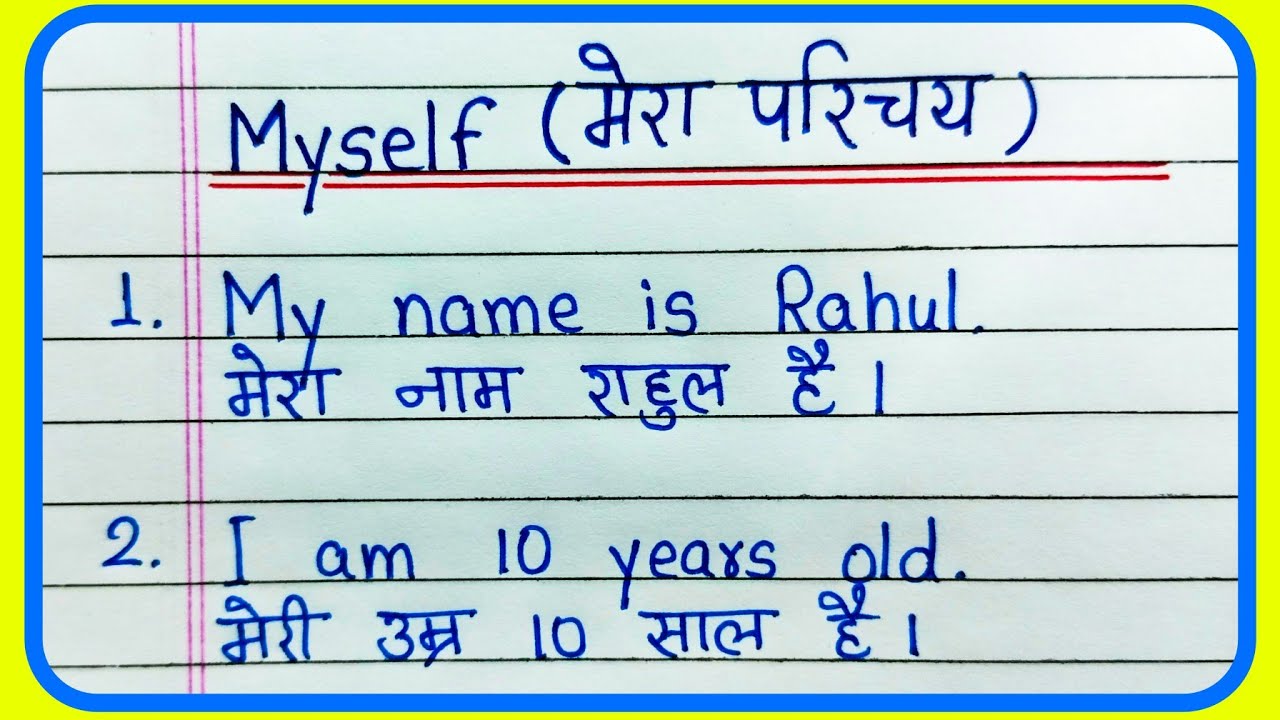 Myself (मेरा परिचय)
1. My name is Rahul.
मेरा नाम राहुल है।
2. I am 10 years old.
मेरी उम्र 10 साल है।